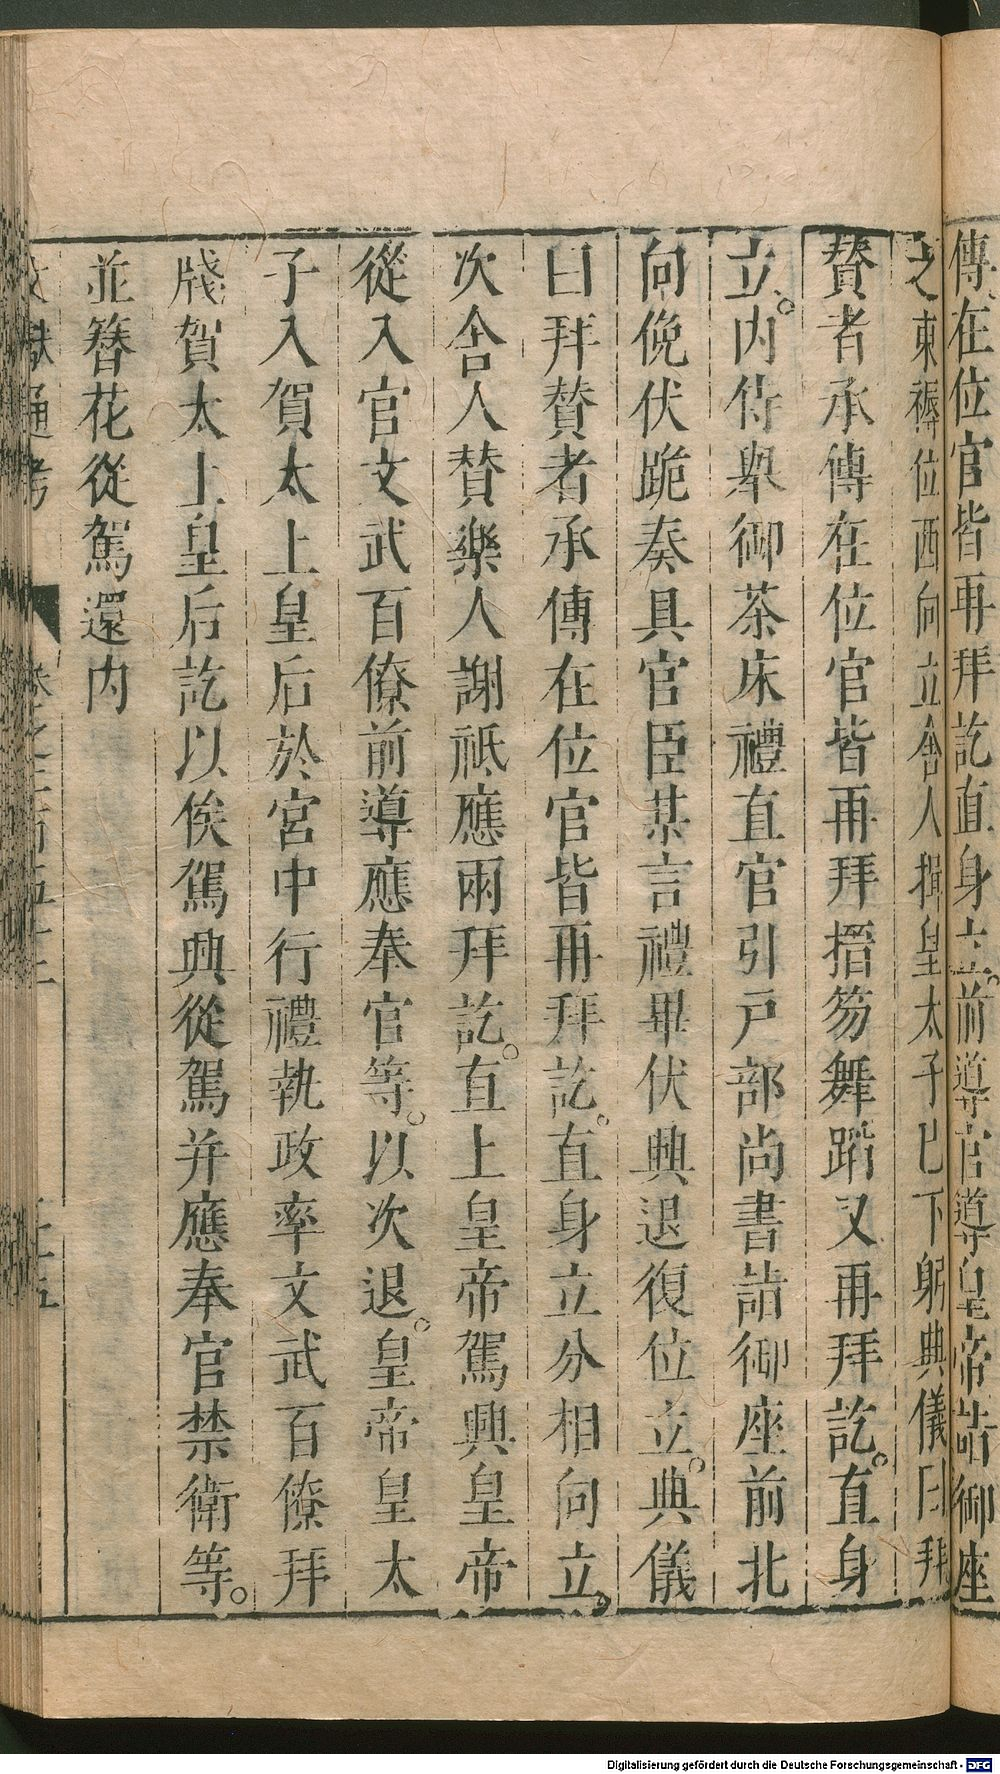 傳在位官皆再拜訖直身立前導官導皇帝詣御座
之東褥位西向立舍人揖皇太子已下躬典儀曰拜
贊者承傳在位官皆再拜搢笏舞蹈又再拜訖。直身
立。内侍舉御茶床禮直官引戸部尚書詣御座前北
向俛伏跪奏具官臣某言禮畢伏興退復位立。典儀
曰拜贊者承傳在位官皆再拜訖。直身立分相向立。
次舍人贊樂人謝祗應兩拜訖。直上皇帝駕興皇帝
從入官文武百僚前導應奉官等。以次退。皇帝皇太
子入賀太上皇后於宮中行禮執政率文武百僚拜
牋賀太上皇后訖以俟駕興從駕并應奉官禁衛等。
並簪花從駕還内
文獻通考
Digitalisierung gefördert durch die Deutsche Forschungsgemeinschaft - DFG